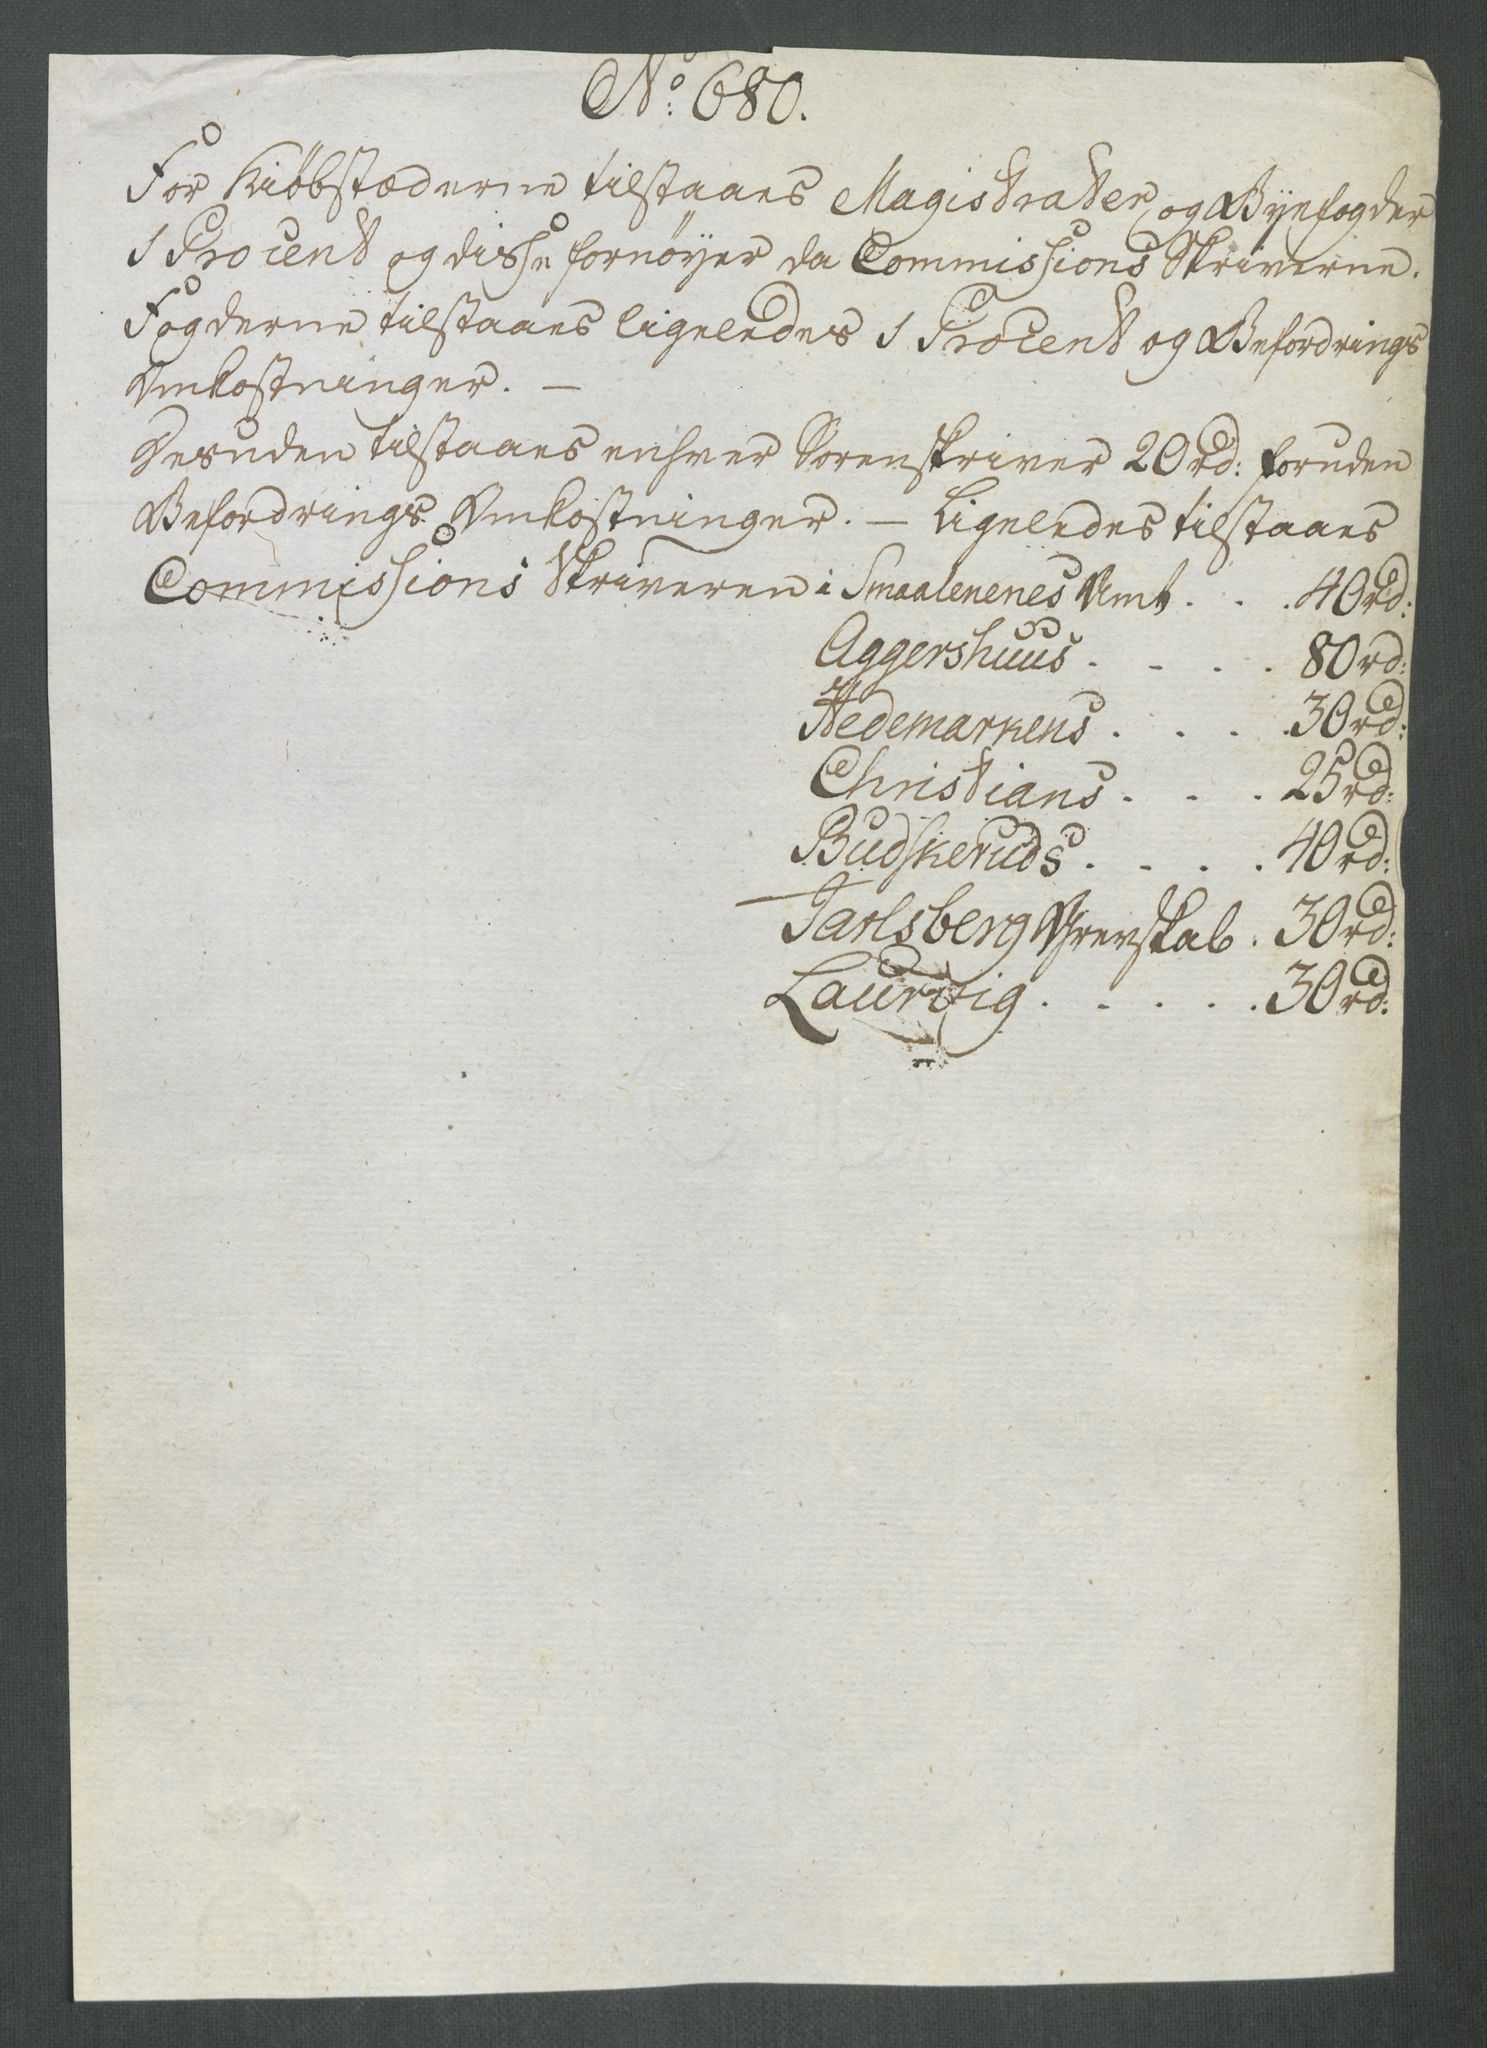 No: 680.
For Kiöbstæderne tilstaaes Magistrater og Byefogder
1 Procent og disse fornöyer da Commissions Skriverne.
Fogderne tilstaaes ligeledes 1 Procent og Befordrings
Omkostninger. —
Desuden tilstaaes enhver Sorenskriver 20 rd: foruden
Befordrings Omkostninger. — Ligeledes tilstaaes
Commissions Skriveren i Smaalenenes Amt . . . 40 rd:
Aggershuus . . . . 80 rd:
Hedemarkens . . . . 30 rd:
Christians . . . 25 rd:
Budskeruds . . . . 40 rd:
Jarlsberg Grevskab . 30 rd:
Laurvig . . . . . 30 rd: